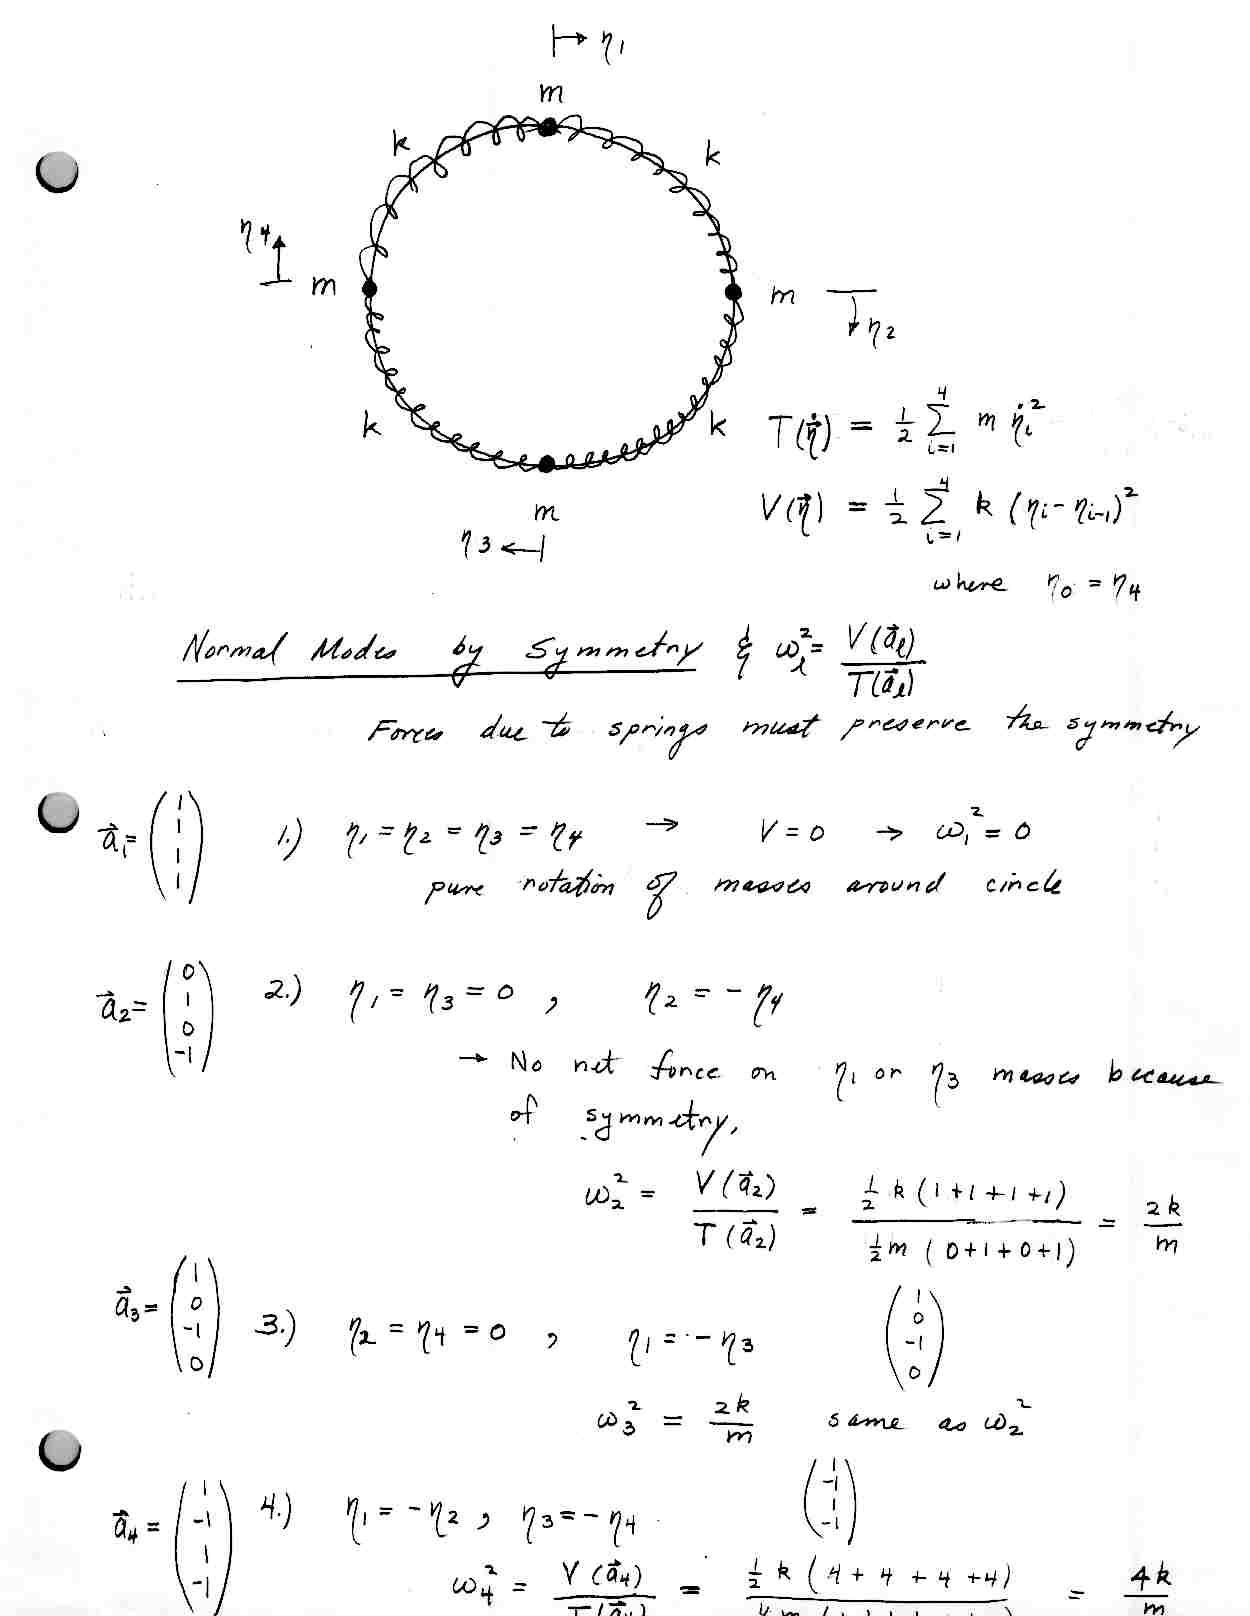 η1
m
k
k
η4
m
m
η2
k
k
T(η̇⃗) = 1/2 Σ_{i=1}^{4} m η̇_i^2
m
V(η⃗) = 1/2 Σ_{i=1}^{4} k (η_i - η_{i-1})^2
η3
where η0 = η4
Normal Modes by Symmetry & ω_l^2 = V(a⃗_l) / T(a⃗_l)
Forces due to springs must preserve the symmetry
a⃗1 = (1 1 1 1) 1.) η1 = η2 = η3 = η4 → V = 0 → ω1^2 = 0
pure rotation of masses around circle
a⃗2 = (0 1 0 -1) 2.) η1 = η3 = 0 , η2 = - η4
→ No net force on η1 or η3 masses because
of symmetry.
ω2^2 = V(a⃗2) / T(a⃗2) = 1/2 k (1+1+1+1) / 1/2 m (0+1+0+1) = 2k / m
a⃗3 = (1 0 -1 0) 3.) η2 = η4 = 0 , η1 = - η3 (1 0 -1 0)
ω3^2 = 2k / m same as ω2^2
a⃗4 = (1 -1 1 -1) 4.) η1 = - η2 , η3 = - η4 (1 -1 1 -1)
ω4^2 = V(a⃗4) / T(a⃗4) = 1/2 k (4 + 4 + 4 + 4) = 4k / m